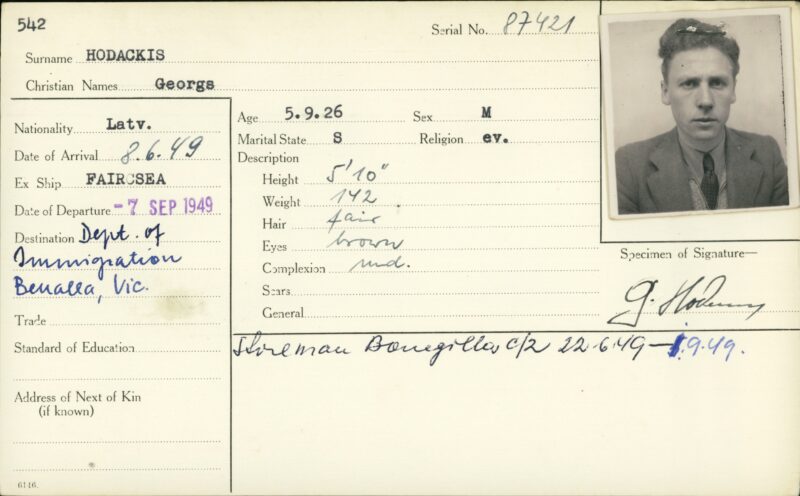 542
Serial No. 87421
Surname HODACKIS
Christian Names Georgs
Nationality Latv.
Date of Arrival 8.6.49
Ex Ship FAIRCSEA
Date of Departure - 7 SEP 1949
Destination Dept. of
Immigration
Benalla, Vic.
Trade
Standard of Education
Address of Next of Kin
(if known)
6116.
Age 5.9.26 Sex M
Marital State S Religion ev.
Description
Height 5'10"
Weight 142.
Hair fair
Eyes brown
Complexion md.
Scars
General
Specimen of Signature—
Storeman Bonegilla c/2 22.6.49 — .9.49.